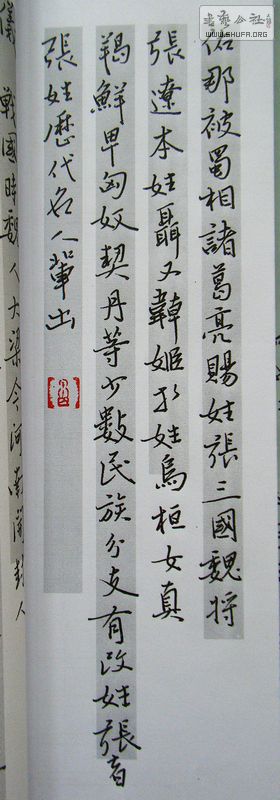 佑那被蜀相諸葛亮賜姓張三國魏将
張遼本姓聶又韓姬孔姓烏桓女真
羯鮮卑匈奴契丹等少數民族分支有改姓張者
張姓歷代名人輩出
戰國時魏人大梁今河南開封人
书艺公社
WWW.SHUFA.ORG